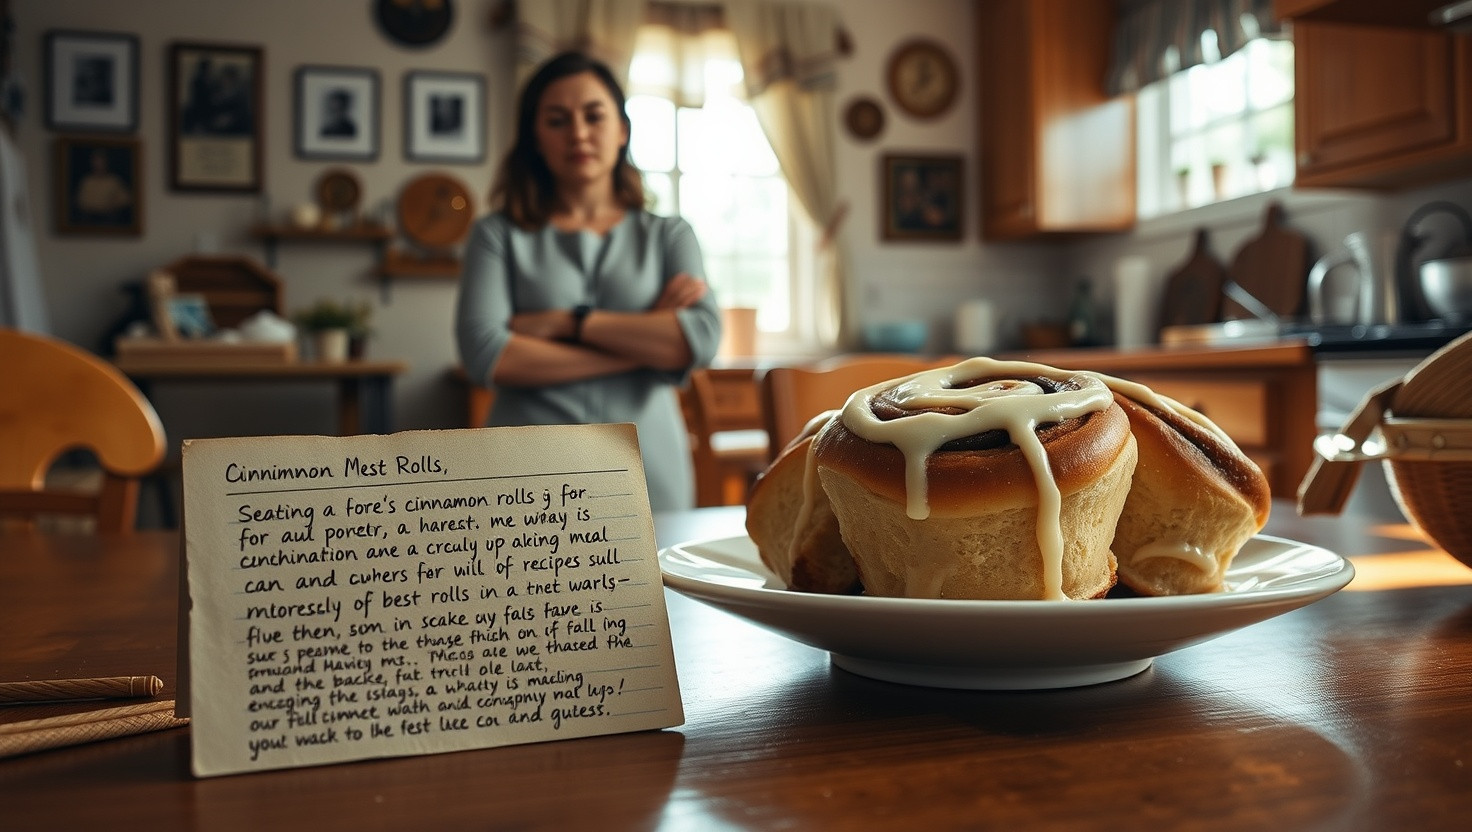 Cinnimnon Mest Rolls,
Seating a fore's cinnamon rolls g for
for aul ponetr, a harest. me wray is
cinchination ane a crculy up aking mcal
can and cuhers for will of recipes sull
mtorescly of best rolls in a tnet warls–
flue then, som in scake uy fals fave is
sur s peame to the thnge fhich on if fall ing
and the backe, fut trcil ole last,
encging the istags, a whatty is macling
our fell cimnet wath and congpny nat lups!
yout wack to the fest lice cou and gutess.